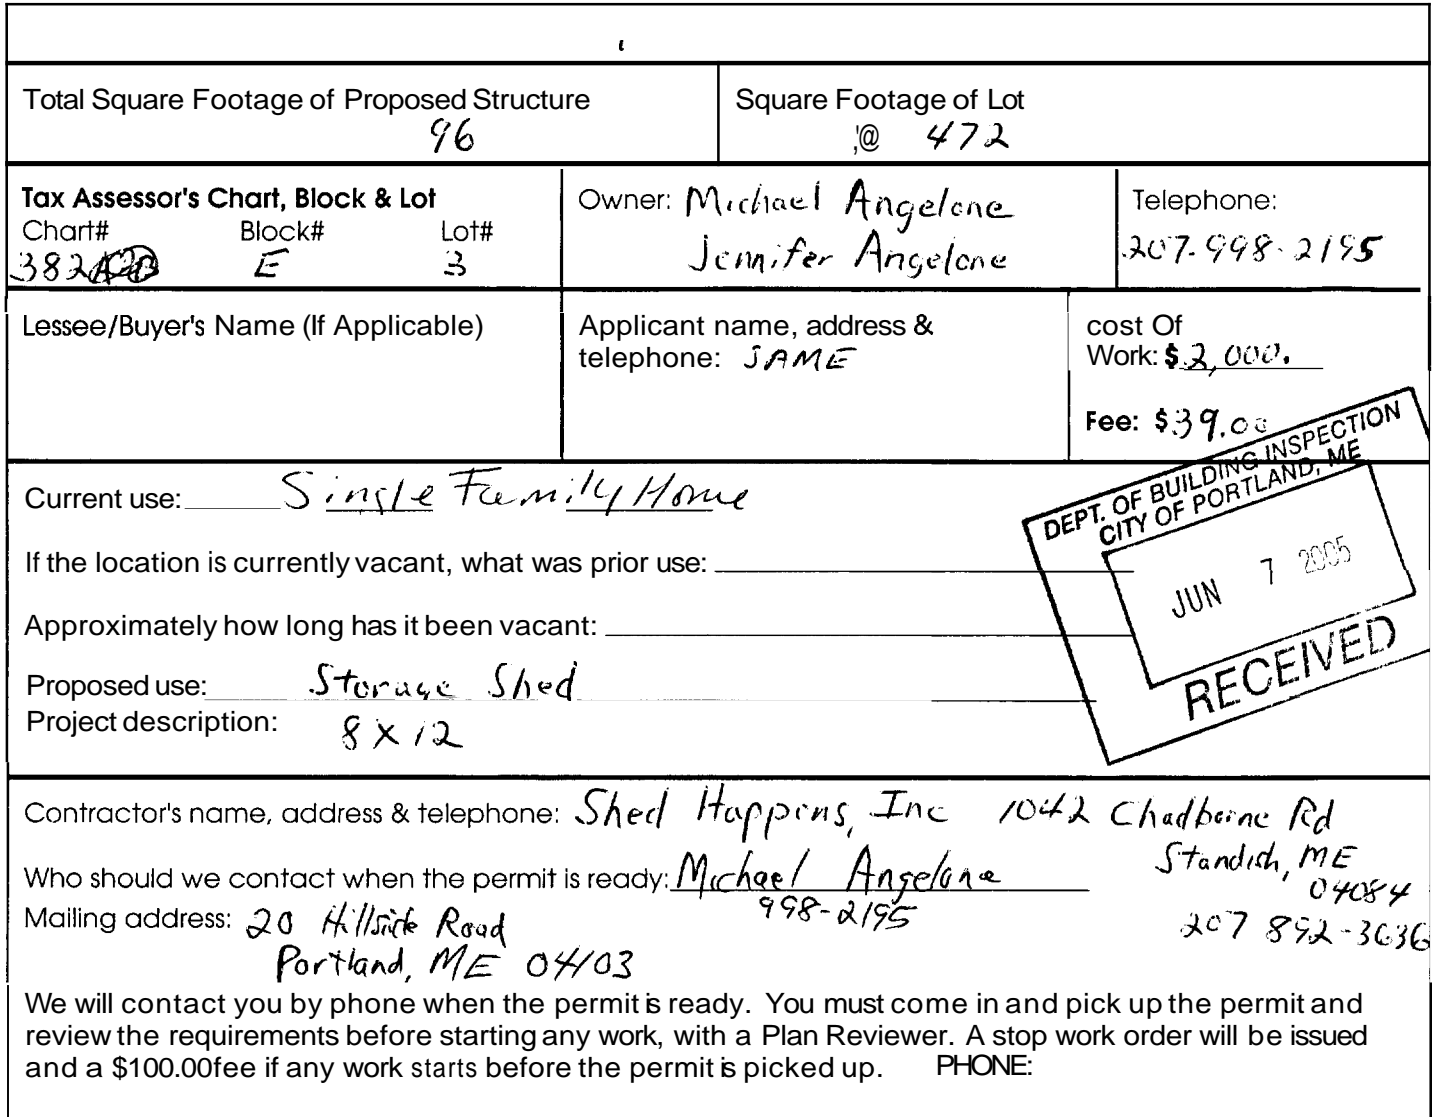 Total Square Footage of Proposed Structure
96
Square Footage of Lot
,'@ 472
Tax Assessor's Chart, Block & Lot
Chart# Block# Lot#
382 E 3
Owner: Michael Angelone
Jennifer Angelone
Telephone:
207-998-2195
Lessee/Buyer's Name (If Applicable)
Applicant name, address &
telephone: SAME
cost Of
Work: $ 2,000.
Fee: $39.00
Current use: Single Family Home
If the location is currently vacant, what was prior use:
Approximately how long has it been vacant:
Proposed use: Storage Shed
Project description: 8 X 12
DEPT. OF BUILDING INSPECTION
CITY OF PORTLAND, ME
JUN 7 2005
RECEIVED
Contractor's name, address & telephone: Shed Happens, Inc 1042 Chadborne Rd
Standish, ME
04084
207 892-3636
Who should we contact when the permit is ready: Michael Angelone
998-2195
Mailing address: 20 Hillside Road
Portland, ME 04103
We will contact you by phone when the permit is ready. You must come in and pick up the permit and
review the requirements before starting any work, with a Plan Reviewer. A stop work order will be issued
and a $100.00fee if any work starts before the permit is picked up. PHONE: